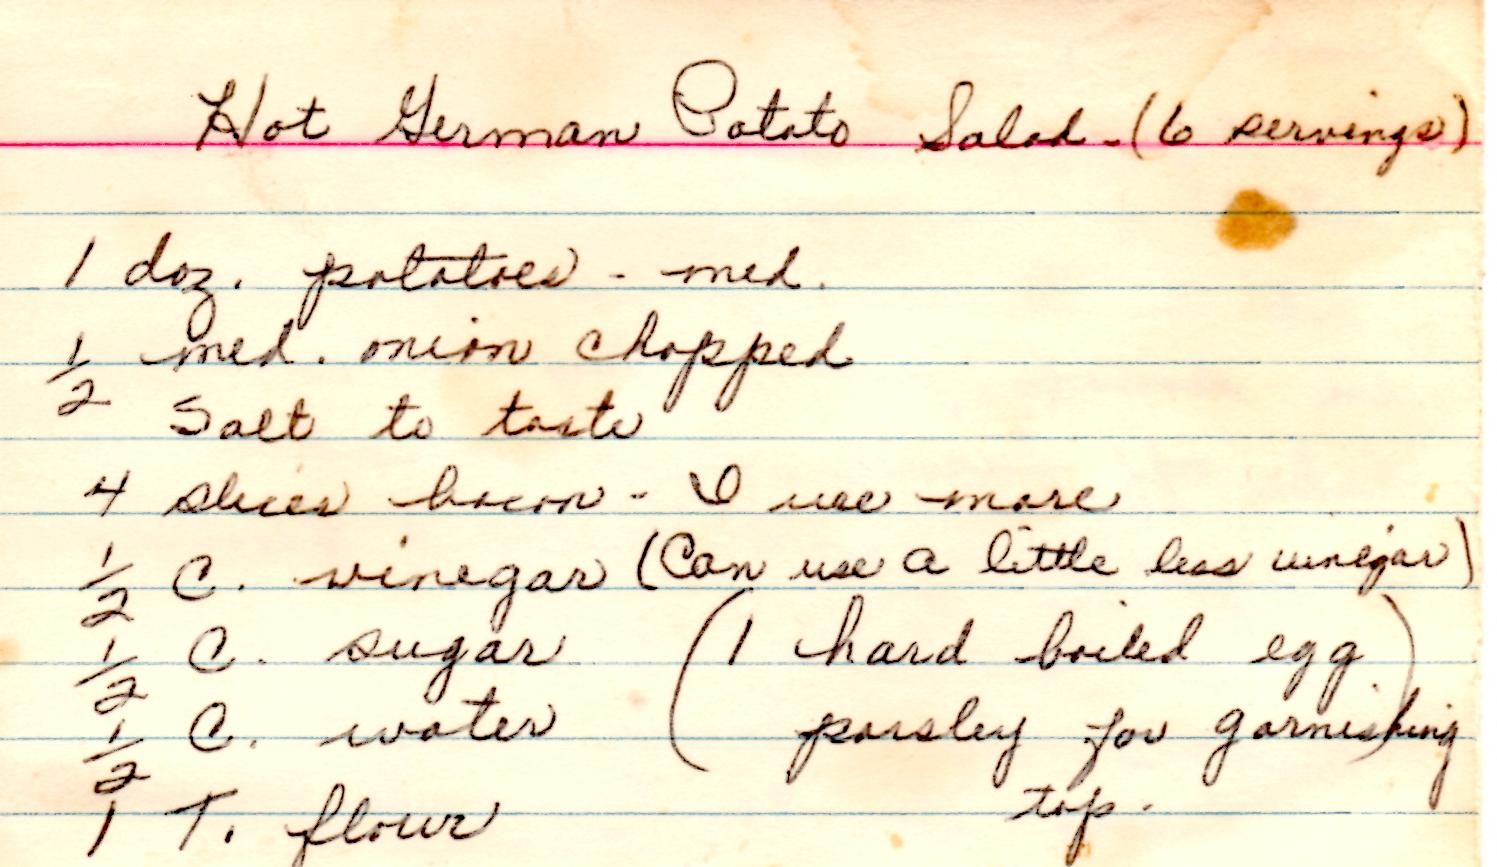 Hot German Potato Salad - (6 servings)
1 doz. potatoes - med.
1/2 med. onion chopped
Salt to taste
4 slices bacon - I use more
1/2 C. vinegar (Can use a little less vinegar)
1/2 C. sugar (1 hard boiled egg)
1/2 C. water parsley for garnishing
1 T. flour top.